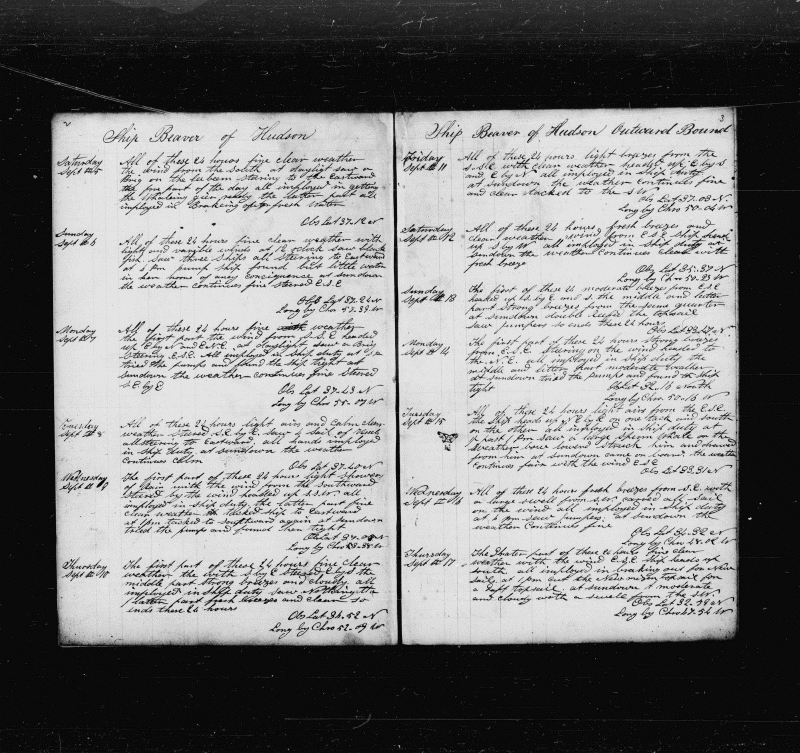 2
Ship Beaver of Hudson
Saturday
Sept th 5
All of these 24 hours fine clear weather
the wind from the south at daylight saw a
Brig on the Larboard stering to the Eastward
the fore part of the day all imployed in getting
the Whaling gier ready the latter part all
imployed in Breaking out fresh water
Obs Lat 37-12 N
Sunday
Sept th 6
All of these 24 hours fine clear weather with
light and varible winds at 12 clock saw black
fish saw three ships all stering to Eastward
at 6 pm pump ship found but little water
in her none of any conciquence at sundown
the weather continues fine stered E.S.E
Obs Lat 37.24 N
Long by Chro 53.39 W
Monday
Sept th 7
All of these 24 hours fine weather
the first part the wind from S.S.E headed
up E by N and E at daylight saw a Brig
Stering E.S.E. All employed in ship duty at
tried the pumps and found the ship tight at
sundown the weather continues fine stered
S.E by E
Obs Lat 37-43 N
Long by Chro 55-07 W
Tuesday
Sept th 8
All of these 24 hours light airs and Calm clear
weather stered S.E. by E. saw 4 sail of Vessel
all stering to Eastward, all hands imployed
in ship duty, at sundown the weather
continues calm
Obs Lat 37-40 N
Wednesday
Sept th 9
The first part of these 24 hours light shower
of Rain with the wind from the southward
stered by the wind headed up S.S.W. all
employed in ship duty, the latter part fine
clear weather at tacked ship to Eastward
at 1 pm tacked to southward again at sundown
tried the pumps and found them tight
Obs Lat N
Long by Chro W
Thursday
Sept th 10
The first part of these 24 hours fine clear
weather the with S by E stered E by S the
middle part Strong breezes and cloudy all
imployed in ship duty saw Nothing the
latter part fresh breezes and clear so
ends these 24 hours
Obs Lat 36.52 N
Long by Chro 52-09 W
3
Ship Beaver of Hudson Outward Bound
Friday
Sept th 11
All of these 24 hours light brezes from the
S.S.E with clear weather headed up E by S
and E by N all imployed in ship duty
at sundown the weather continues fine
and clear tacked to the S W
Obs Lat 37-03 N
Long by Chro 50-06 W
Saturday
Sept th 12
All of these 24 hours fresh breeze and
clear weather wind from E.S.E ship head
up S by W all imployed in ship duty at
sundown the weather continues clear with
fresh breeze
Obs Lat 35-37 N
Long by Chro 50-23 W
Sunday
Sept th 13
The first of these 24 moderate brezes from E.S.E
headed up S. by E. and S. the middle and latter
part Strong breezes from the same quarter
at sundown double reefed the topsail
saw jumpers so ends these 24 hours
Monday
Sept th 14
The first part of these 24 hours Strong breezes
from E.S.E. Stering on the wind headed to
the N.E. all imployed in ship duty the
middle and latter part moderate weather
at sundown tried the pumps and found the ship
tight
Obs Lat 34-16 North
Long by Chro 50-16 W
Tuesday
Sept th 15
All of these 24 hours light airs from the E.S.E.
the ship heads up N E by E on one tack and south
on the other all imployed in ship duty at
½ past 1 pm saw a large Sperm Whale on the
weather bow lowerd &amp; Struck him and drawed
from him at sundown came on board the weather
continues fair with the wind E.S.E
Obs Lat 33.31 N
Wednesday
Sept th 16
All of these 24 hours fresh brezes from S.E. with
a large swell from S.E. carried all Sail
on the wind all imployed in ship duty
at 4 pm saw jumpers. at sundown the
weather continues fine
Obs Lat 34-32 N
Long by Chro 48-05 W
Thursday
Sept th 17
The Starter part of these 24 hours fine clear
weather with the wind E.S.E. ship heads up
south all imployed in braking out for New
sails, at 1 pm cut the New mizen topsail for
a topsail, at sundown moderate
and cloudy with a swell from the S.W.
Obs Lat 32-39 N
Long by Chro 47-54 W